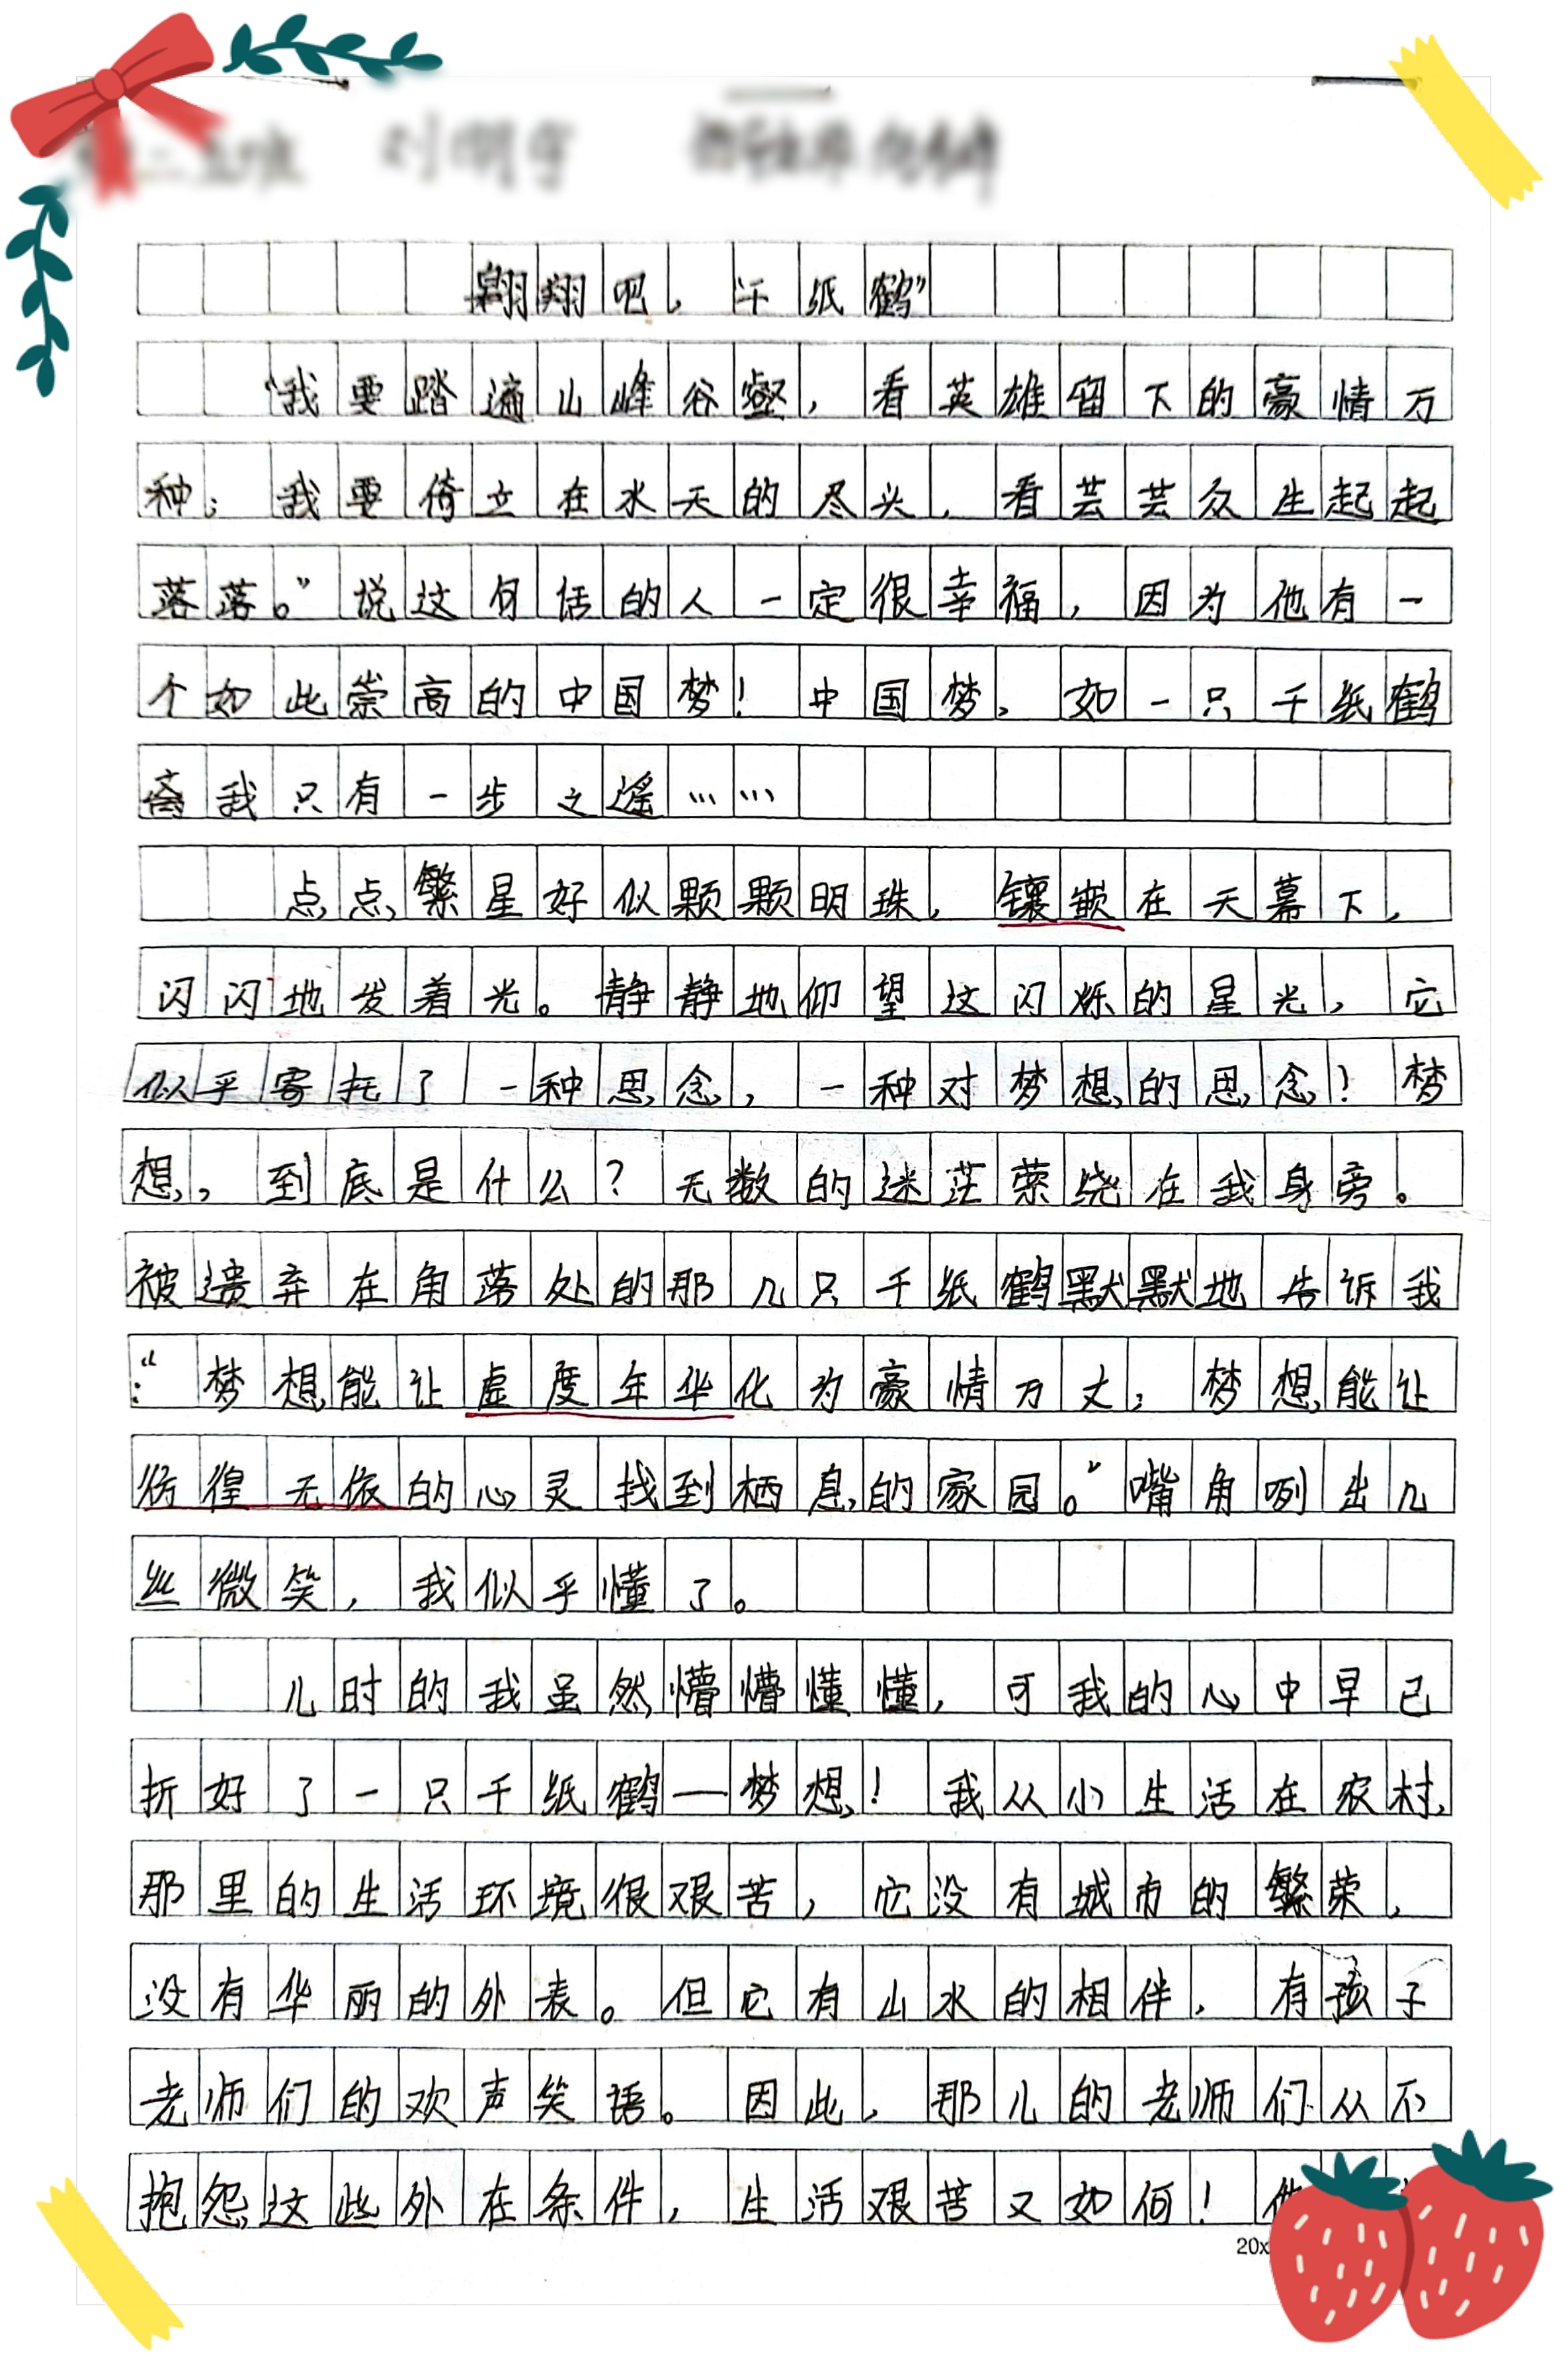 翱翔吧，“千纸鹤”
“我要踏遍山峰谷壑，看英雄留下的豪情万
种；我要倚立在水天的尽头，看芸芸众生起起
落落。”说这句话的人一定很幸福，因为他有一
个如此崇高的中国梦！中国梦，如一只千纸鹤
离我只有一步之遥……
点点繁星好似颗颗明珠，镶嵌在天幕下，
闪闪地发着光。静静地仰望这闪烁的星光，它
似乎寄托了一种思念，一种对梦想的思念！梦
想，到底是什么？无数的迷茫萦绕在我身旁。
被遗弃在角落处的那几只千纸鹤默默地告诉我
：“梦想能让虚度年华化为豪情万丈，梦想能让
彷徨无依的心灵找到栖息的家园。”嘴角咧出几
丝微笑，我似乎懂了。
儿时的我虽然懵懵懂懂，可我的心中早已
折好了一只千纸鹤—梦想！我从小生活在农村，
那里的生活环境很艰苦，它没有城市的繁荣，
没有华丽的外表。但它有山水的相伴，有孩子
老师们的欢声笑语。因此，那儿的老师们从不
抱怨这些外在条件，生活艰苦又如何！
20x